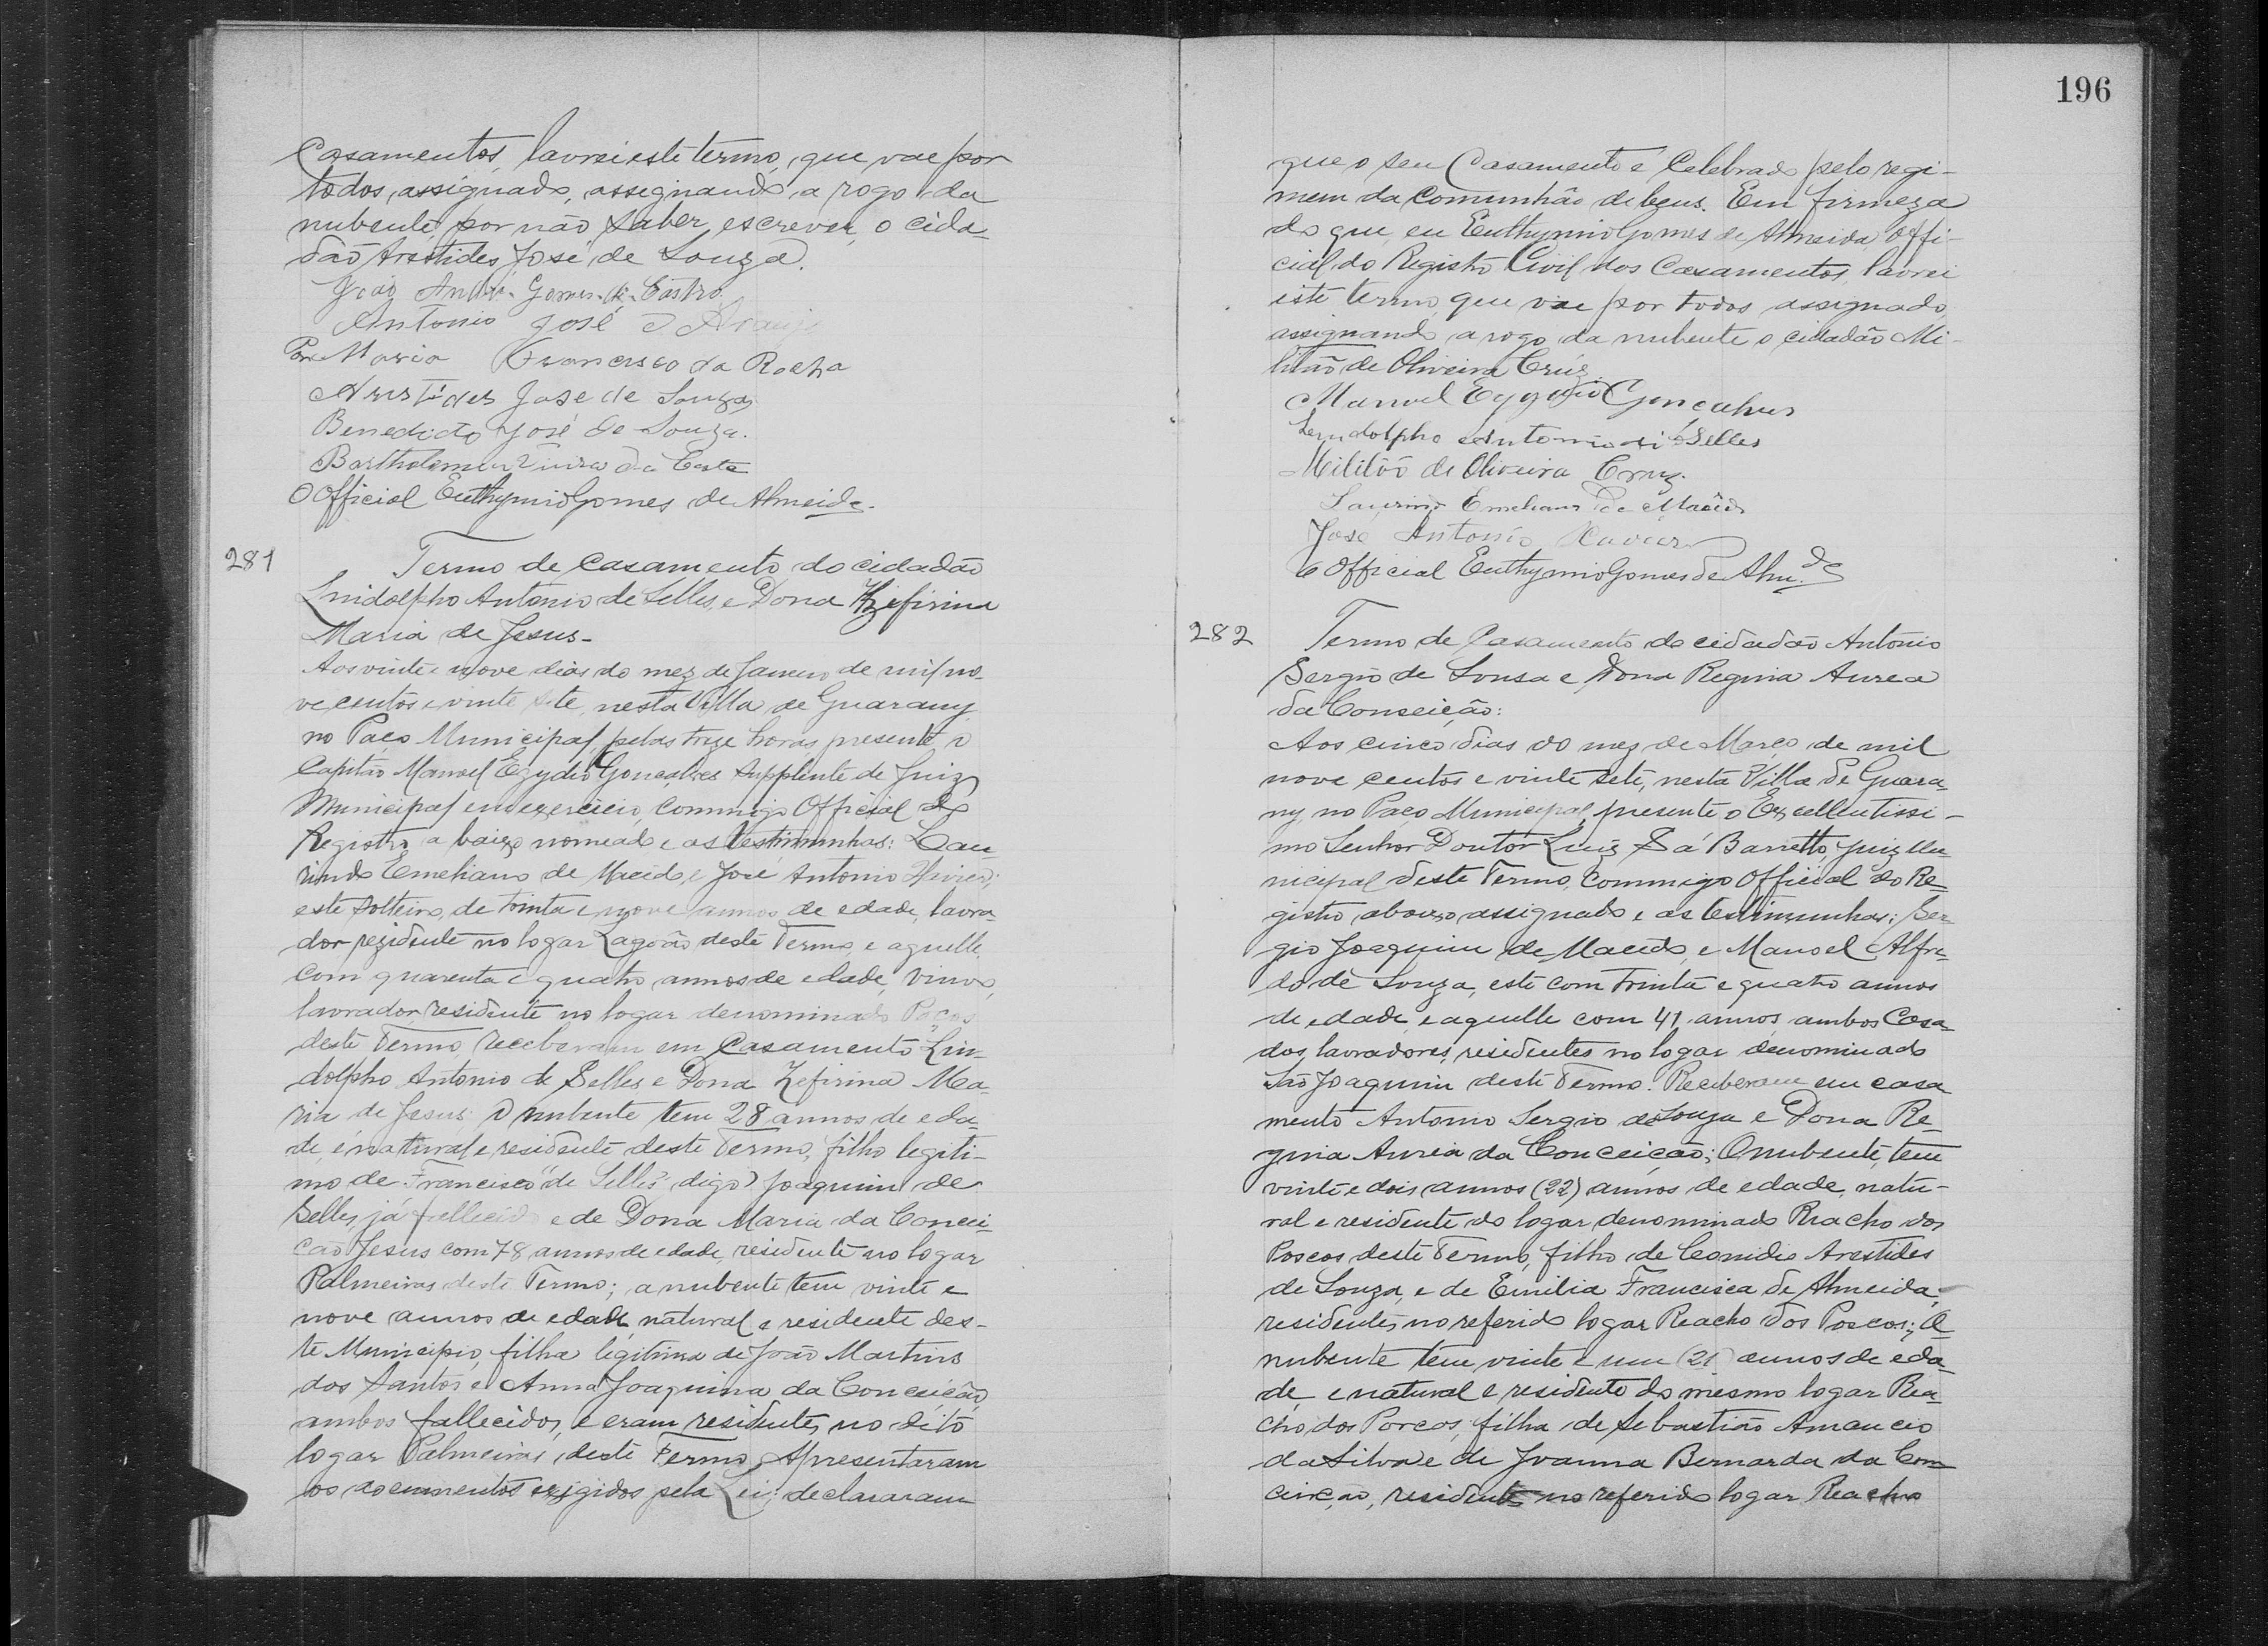 Casamentos, lavrei este termo, que vae por
todos, assignado, assignando a rogo da
nubente, por não saber escrever, o cida-
dão Arestides José de Souza.
João André Gomes de Castro
Antonio José d Araujo
Maria Francisco da Rocha
Aristides José de Souza
Benedicto José de Souza.
Bartholomeu Vieira da Costa
O Official Euthymio Gomes de Almeida.
281
Termo de Casamento do cidadão
Lindolpho Antonio de Selles, e Dona Zefirina
Maria de Jesus-
Aos vinte e nove dias do mez de Janeiro de mil no-
vecentos e vinte sete, nesta Villa de Guarany
no Paço Municipal, pelas treze horas, presente o
Capitão Manoel Egydio Gonçalves Supplente de Juiz
Municipal em exercicio, commigo Official do
Registro a baixo nomeado e as testimunhas: Lau-
rindo Emeliano de Macêdo, e José Antonio Xavier;
este solteiro, de trinta e nove annos de edade, lavra-
dor rezidente no logar Lagoão deste Termo, e aquelle,
com quarenta e quatro annos de edade, viuvo,
lavrador, residente no logar denominado Poços
deste Termo, receberam em Casamento Lin-
dolpho Antonio de Selles e Dona Zefirina Ma-
ria de Jesus; O nubente tem 28 annos de eda-
de, é natural e residente deste Termo, filho legiti-
mo de Francisco "de Selles" digo) Joaquim de
Selles, já fallecido e de Dona Maria da Concei-
ção Jesus com 78 annos de edade, residente no logar
Palmeiras deste Termo; a nubente tem vinte e
nove annos de edade, natural e residente des-
te Municipio, filha legitima de João Martins
dos Santos e Anna Joaquina da Conceição,
ambos fallecidos, e eram residentes no dito
logar Palmeiras, deste Termo, Apresentaram
os documentos exjgidos pela Lei; declararam
196
que o seu Casamento é Celebrado pelo regi-
mem da Comunhão de bens. Em firmeza
do que, eu Euthymio Gomes de Almeida Offi-
cial do Registro Civil dos Casamentos, lavrei
este termo, que vae por todos assignado,
assignando a rogo da nubente o cidadão Mi-
litão de Oliveira Crúz.
Manoel Egydio Gonçalves
Lendolpho Antonio de Selles
Mililão de Oliveira Cruz.
Laurindo Emeliano de Macêdo
José Antonio Xavier
O Official Euthymio Gomes de Alm.da
282
Termo de Casamento do cidadão Antonio
Sergio de Sousa e Dona Regina Aurea
da Conseição:
Aos cinco dias do mez de Março de mil
nove centos e vinte sete, nesta Villa de Guara-
ny, no Paço Municipal, presente o Excellentissi-
mo Senhor Doutor Luiz Sá Barretto, Juiz Mu-
nicipal deste Termo, Commigo Official do Re-
gistro abaixo assignado e as testimunhas: Ser-
gio Joaquim de Macêdo, e Manoel Alfre-
do de Souza, este com trinta e quatro annos
de edade, e aquelle com 41 annos, ambos Casa-
dos, lavradores, residentes no logar denominado
São Joaquim deste Termo. Receberam em casa
mento Antonio Sergio de Souza e Dona Re-
gina Aurea da Conceição; O nubente, tem
vinte e dois annos (22) annos de edade, natu-
ral e residente do logar denominado Riacho dos
Poscos deste Termo, filho de Leonidio Arestides
de Souza, e de Emilia Francisca de Almeida,
residentes no referido logar Reacho dos Poscos; A
nubente tem vinte e um (21) annos de eda-
de, e natural e residente do mesmo logar Rea-
cho dos Porcos, filha de Sebastião Amancio
da Silva e de Joanna Bernarda da Con
ceição, residente no referido logar Reacho